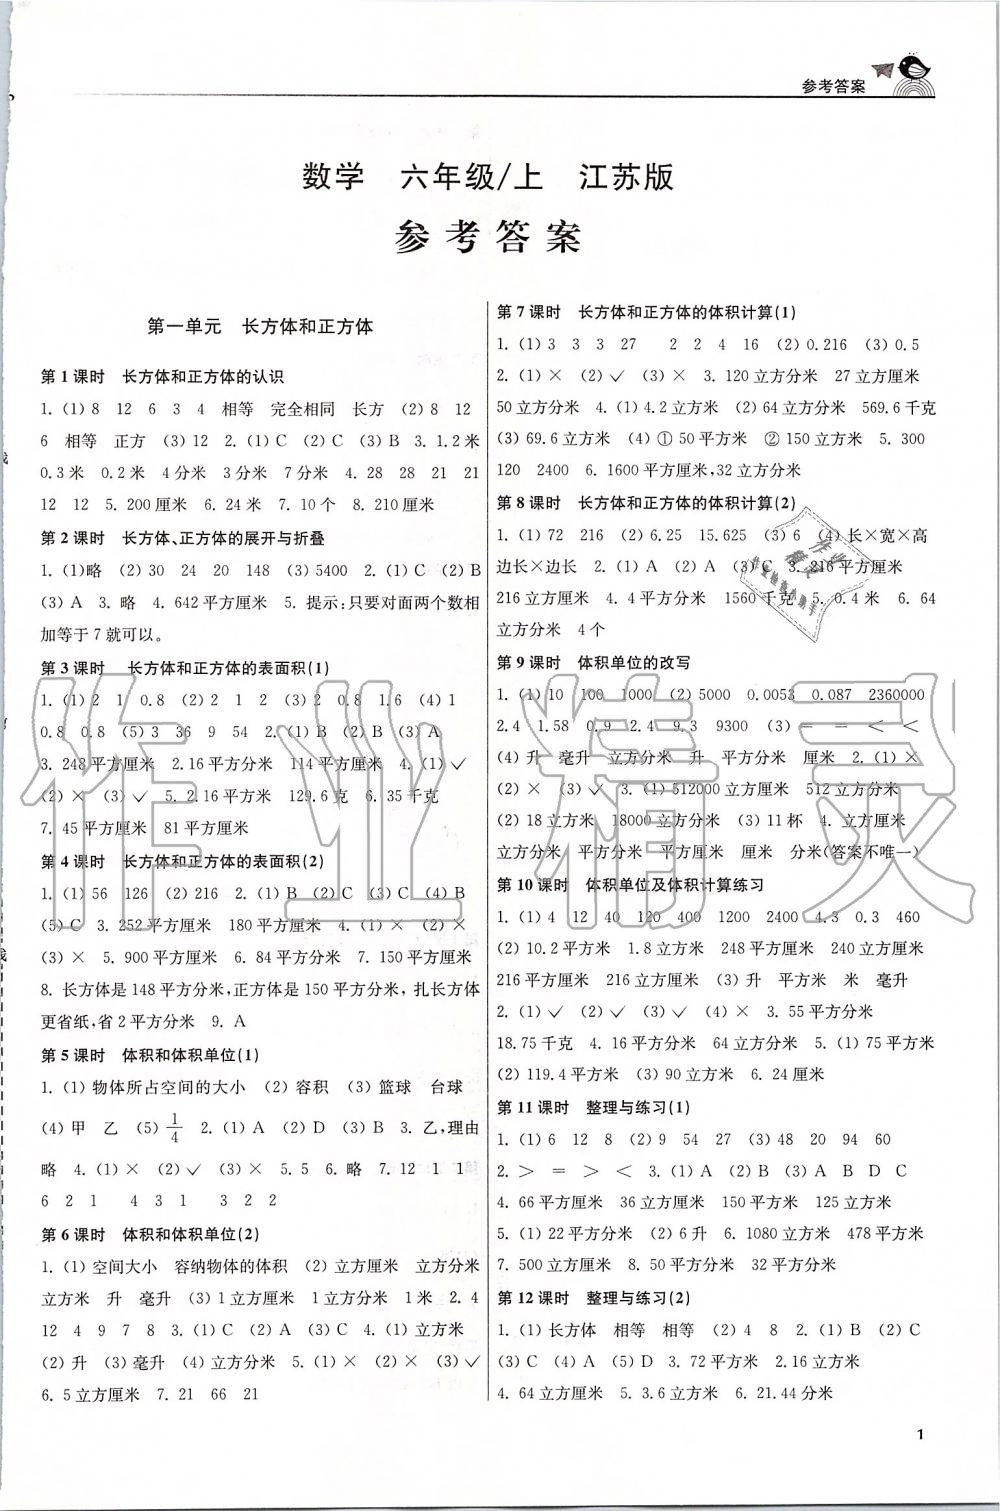 参考答案
数学 六年级/上 江苏版
参考答案
第一单元 长方体和正方体
第1课时 长方体和正方体的认识
1. (1)8 12 6 3 4 相等 完全相同 长方 (2)8 12
6 相等 正方 (3)12 2. (1)C (2)C (3)B 3. 1.2米
0.3米 0.2米 4分米 3分米 7分米 4. 28 28 21 21
12 12 5. 200厘米 6. 24米 7. 10个 8. 210厘米
第2课时 长方体、正方体的展开与折叠
1. (1)略 (2)30 24 20 148 (3)5400 2. (1)C (2)B
(3)A 3. 略 4. 642平方厘米 5. 提示:只要对面两个数相
加等于7就可以。
第3课时 长方体和正方体的表面积(1)
1. (1)2 1 0.8 (2)2 1 2 (3)2 0.8 1.6 (4)1
0.8 0.8 (5)3 36 9 54 2. (1)B (2)B (3)A
3. 248平方厘米 2.16平方分米 114平方厘米 4. (1)✓
(2)× (3)✓ 5. 2.16平方米 129.6克 6. 35千克
7. 45平方厘米 81平方厘米
第4课时 长方体和正方体的表面积(2)
1. (1)56 126 (2)216 2. (1)B (2)C (3)C (4)B
(5)C 3. 252平方厘米 180平方厘米 4. (1)× (2)×
(3)× 5. 900平方厘米 6. 84平方分米 7. 150平方厘米
8. 长方体是148平方分米,正方体是150平方分米, 扎长方体
更省纸,省2平方分米 9. A
第5课时 体积和体积单位(1)
1. (1)物体所占空间的大小 (2)容积 (3)篮球 台球
(4)甲 乙 (5)1/4 2. (1)A (2)D (3)B 3. 乙,理由
略 4. (1)× (2)✓ (3)× 5. 5 6. 略 7. 12 1 1
6 2 1 4 3 1 3 2 2
第6课时 体积和体积单位(2)
1. (1)空间大小 容纳物体的体积 (2)立方厘米 立方分米
立方米 升 毫升 (3)1立方厘米 1立方分米 1米 2. 4
12 4 9 7 8 3. (1)C (2)A (3)C 4. (1)立方米
(2)升 (3)毫升 (4)立方分米 5. (1)× (2)× (3)✓
6. 5立方厘米 7. 21 66 21
第7课时 长方体和正方体的体积计算(1)
1. (1)3 3 3 27 2 2 4 16 (2)0.216 (3)0.5
2. (1)× (2)✓ (3)× 3. 120立方分米 27立方厘米
50立方分米 4. (1)4.2立方米 (2)64立方分米 569.6千克
(3)69.6立方米 (4)①50平方米 ②150立方米 5. 300
120 2400 6. 1600平方厘米,32立方分米
第8课时 长方体和正方体的体积计算(2)
1. (1)72 216 (2)6.25 15.625 (3)6 (4)长×宽×高
边长×边长 2. (1)A (2)A (3)C 3. 216平方厘米
216立方厘米 4. 4平方分米 1560千克 5. 0.4米 6. 64
立方分米 4个
第9课时 体积单位的改写
1. (1)10 100 1000 (2)5000 0.0053 0.087 2360000
2.4 1.58 0.9 2.4 9.3 9300 (3)= = < <
(4)升 毫升 立方分米 升 平方分米 厘米 2. (1)×
(2)× (3)✓ 3. (1)512000立方厘米 512立方分米
(2)18立方米 18000立方分米 (3)11杯 4. 立方厘米
立方分米 平方分米 平方厘米 厘米 分米(答案不唯一)
第10课时 体积单位及体积计算练习
1. (1)4 12 40 120 400 1200 2400 4.3 0.3 460
(2)10.2平方米 1.8立方米 248平方厘米 240立方厘米
216平方厘米 216立方厘米 (3)升 平方米 米 毫升
2. (1)✓ (2)✓ (3)✓ (4)× 3. 55平方分米
18.75千克 4. 16平方分米 54平方分米 5. (1)75平方米
(2)119.4平方米 (3)90立方米 6. 24厘米
第11课时 整理与练习(1)
1. (1)6 12 8 (2)9 54 27 (3)48 20 94 60
2. > = > < 3. (1)A (2)B (3)A B D C
4. 66平方厘米 36立方厘米 150平方米 125立方米
5. (1)22平方分米 (2)6升 6. 1080立方米 478平方米
7. 500立方厘米 8. 50平方分米 32平方分米
第12课时 整理与练习(2)
1. (1)长方体 相等 相等 (2)4 8 2. (1)B (2)C
(3)C (4)A (5)D 3. 72平方分米 2.16立方米
4. 64立方厘米 5. 3.6立方分米 6. 21.44分米
1
作业精灵
作业
精灵